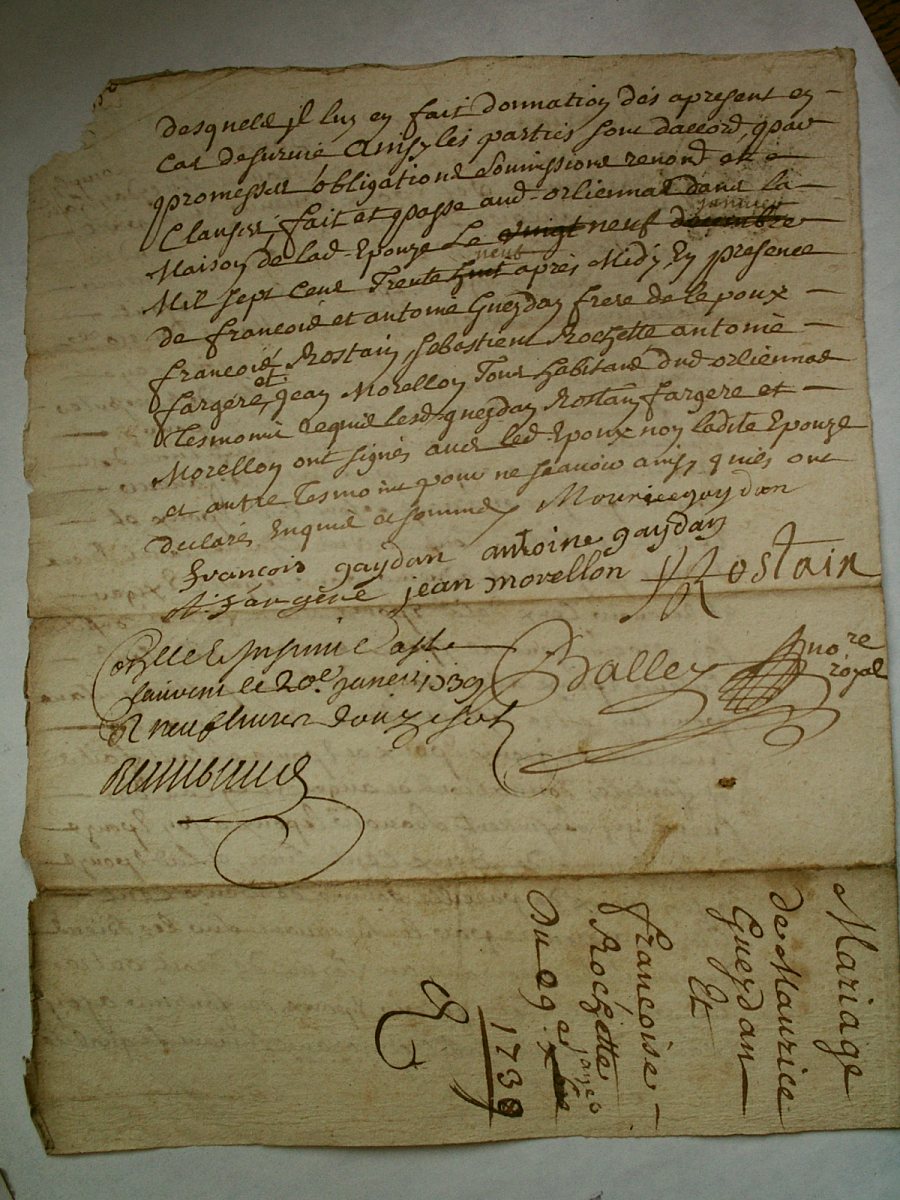 desquels il luy en fait donnation dés apresent en
cas de survie Ainsy les parties sont daccord, par
promesses obligations soumissions renonc et
Clauses, fait et passe aud. orliennas dans la
janvier
Maison de lad. Epouze Le vingt neuf decembre
neuf
Mil sept cent Trente huit apres Midy, En presence
de francois et antoine Gueydan frere de lepoux
francois Rostain, sebastien Rochette antoine
fargere, et jean Morellon Tous habitans dud. orliennas
Tesmoins lesd. gueydan Rostain fargere et
Morellon ont signés avec led. Epoux non ladite Epouze
et autre Tesmoins pour ne scavoir ainsy quils ont
declarés Enquis et sommés Mourice gaydan
francois gaydan antoine gaydan
A. fargere jean morellon Rostain
Balley no.re
royal
suivent le 20e janvier 1739
R neuf livres douze sols
Mariage
de Maurice
Gueydan
Et
francoise
Rochette
Du 29. janv
1739